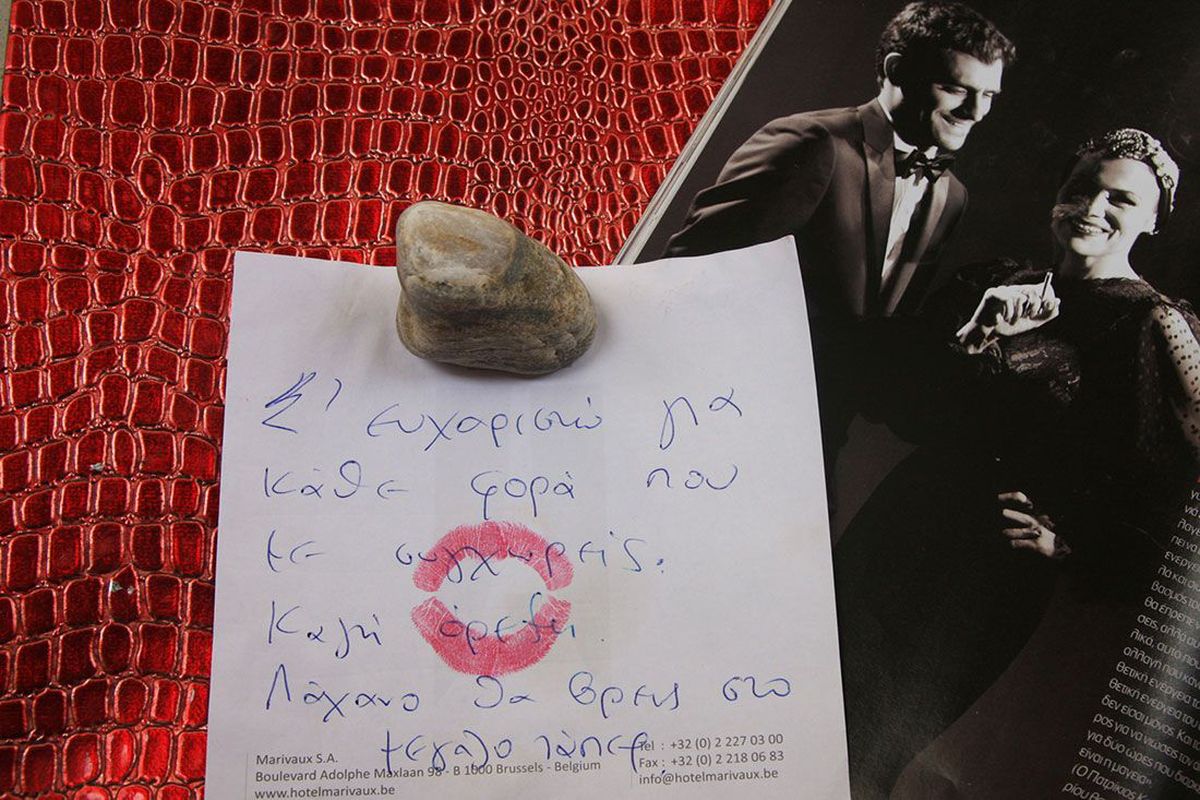 Σ' ευχαριστώ για
κάθε φορά που
με συγχωρείς.
Καλή όρεξη.
Λάχανο θα βρεις στο
μεγάλο τάπερ
Marivaux S.A.
Boulevard Adolphe Maxlaan 98 - B 1000 Brussels - Belgium
www.hotelmarivaux.be
Tel : +32 (0) 2 227 03 00
Fax : +32 (0) 2 218 06 83
info@hotelmarivaux.be
πει να
ενεργει
λα και
βασμος
θα έπρεπε
σεις, αλλά
λικά, αυτό
αλλαγή που
θετική ενέργεια
θετική ενέργεια
δεν είσαι μόνος
ρος για να νιώσεις
για δύο ώρες που
είναι η μαγεία»
(Ο Πατρίκιος
ρίου